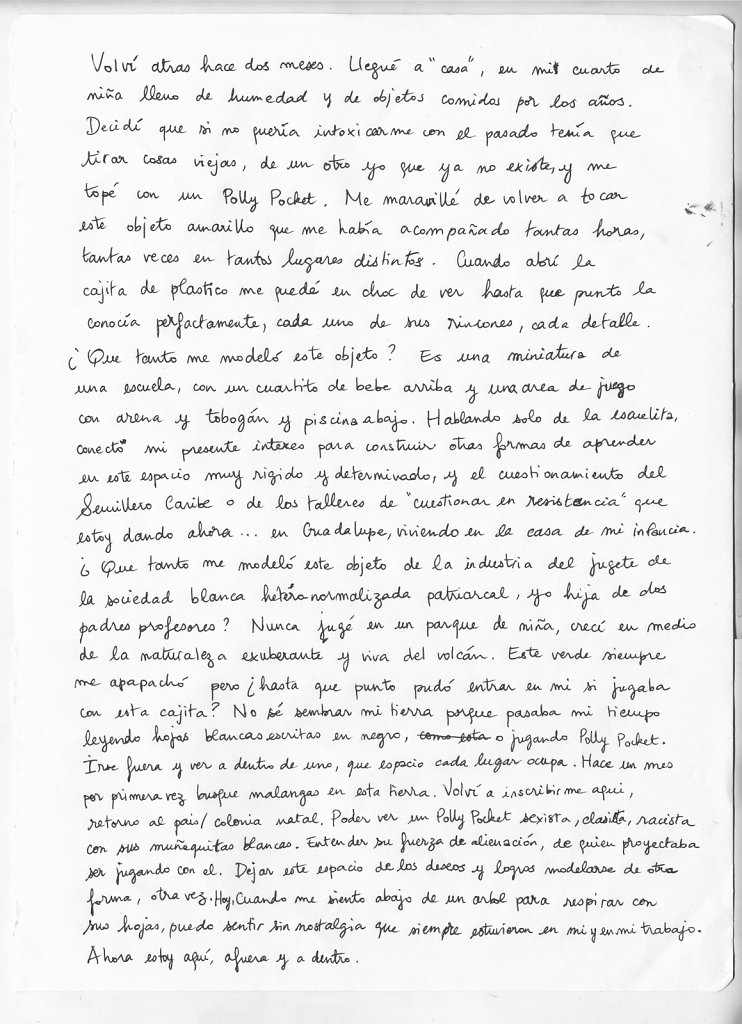 Volví atras hace dos meses. Llegué a "casa", en mi cuarto de
niña lleno de humedad y de objetos comidos por los años.
Decidí que si no quería intoxicarme con el pasado tenía que
tirar cosas viejas, de un otro yo que ya no existe, y me
topé con un Polly Pocket. Me maravillé de volver a tocar
este objeto amarillo que me había acompañado tantas horas,
tantas veces en tantos lugares distintos. Cuando abrí la
cajita de plastico me quedé en choc de ver hasta que punto la
conocía perfactamente, cada uno de sus rincones, cada detalle.
¿Que tanto me modeló este objeto? Es una miniatura de
una escuela, con un cuartito de bebe arriba y una area de juego
con arena y tobogán y piscina abajo. Hablando solo de la escuelita,
conecto mi presente interes para construir otras formas de aprender
en este espacio muy rigido y determinado, y el cuestionamiento del
Semillero Caribe o de los talleres de "cuestionar en resistancia" que
estoy dando ahora... en Guadalupe, viviendo en la casa de mi infancia.
¿Que tanto me modeló este objeto de la industria del jugete de
la sociedad blanca hétéro-normalizada patriarcal, yo hija de dos
padres profesores? Nunca jugé en un parque de niña, crecí en medio
de la naturaleza exuberante y viva del volcán. Este verde siempre
me apapachó pero ¿hasta que punto pudó entrar en mi si jugaba
con esta cajita? No sé sembrar mi tierra porque pasaba mi tiempo
leyendo hojas blancas escritas en negro, como esta o jugando Polly Pocket.
Irse fuera y ver a dentro de uno, que espacio cada lugar ocupa. Hace un mes
por primera vez busque malangas en esta tierra. Volví a inscribirme aqui,
retorno al pais/colonia natal. Poder ver un Polly Pocket sexista, clasista, racista
con sus muñequitas blancas. Entender su fuerza de alienación, de quien proyectaba
ser jugando con el. Dejar este espacio de los deseos y logros modelarse de otra
forma, otra vez. Hoy, Cuando me siento abajo de un arbol para respirar con
sus hojas, puedo sentir sin nostalgia que siempre estuvieron en mi y en mi trabajo.
Ahora estoy aquí, afuera y a dentro.